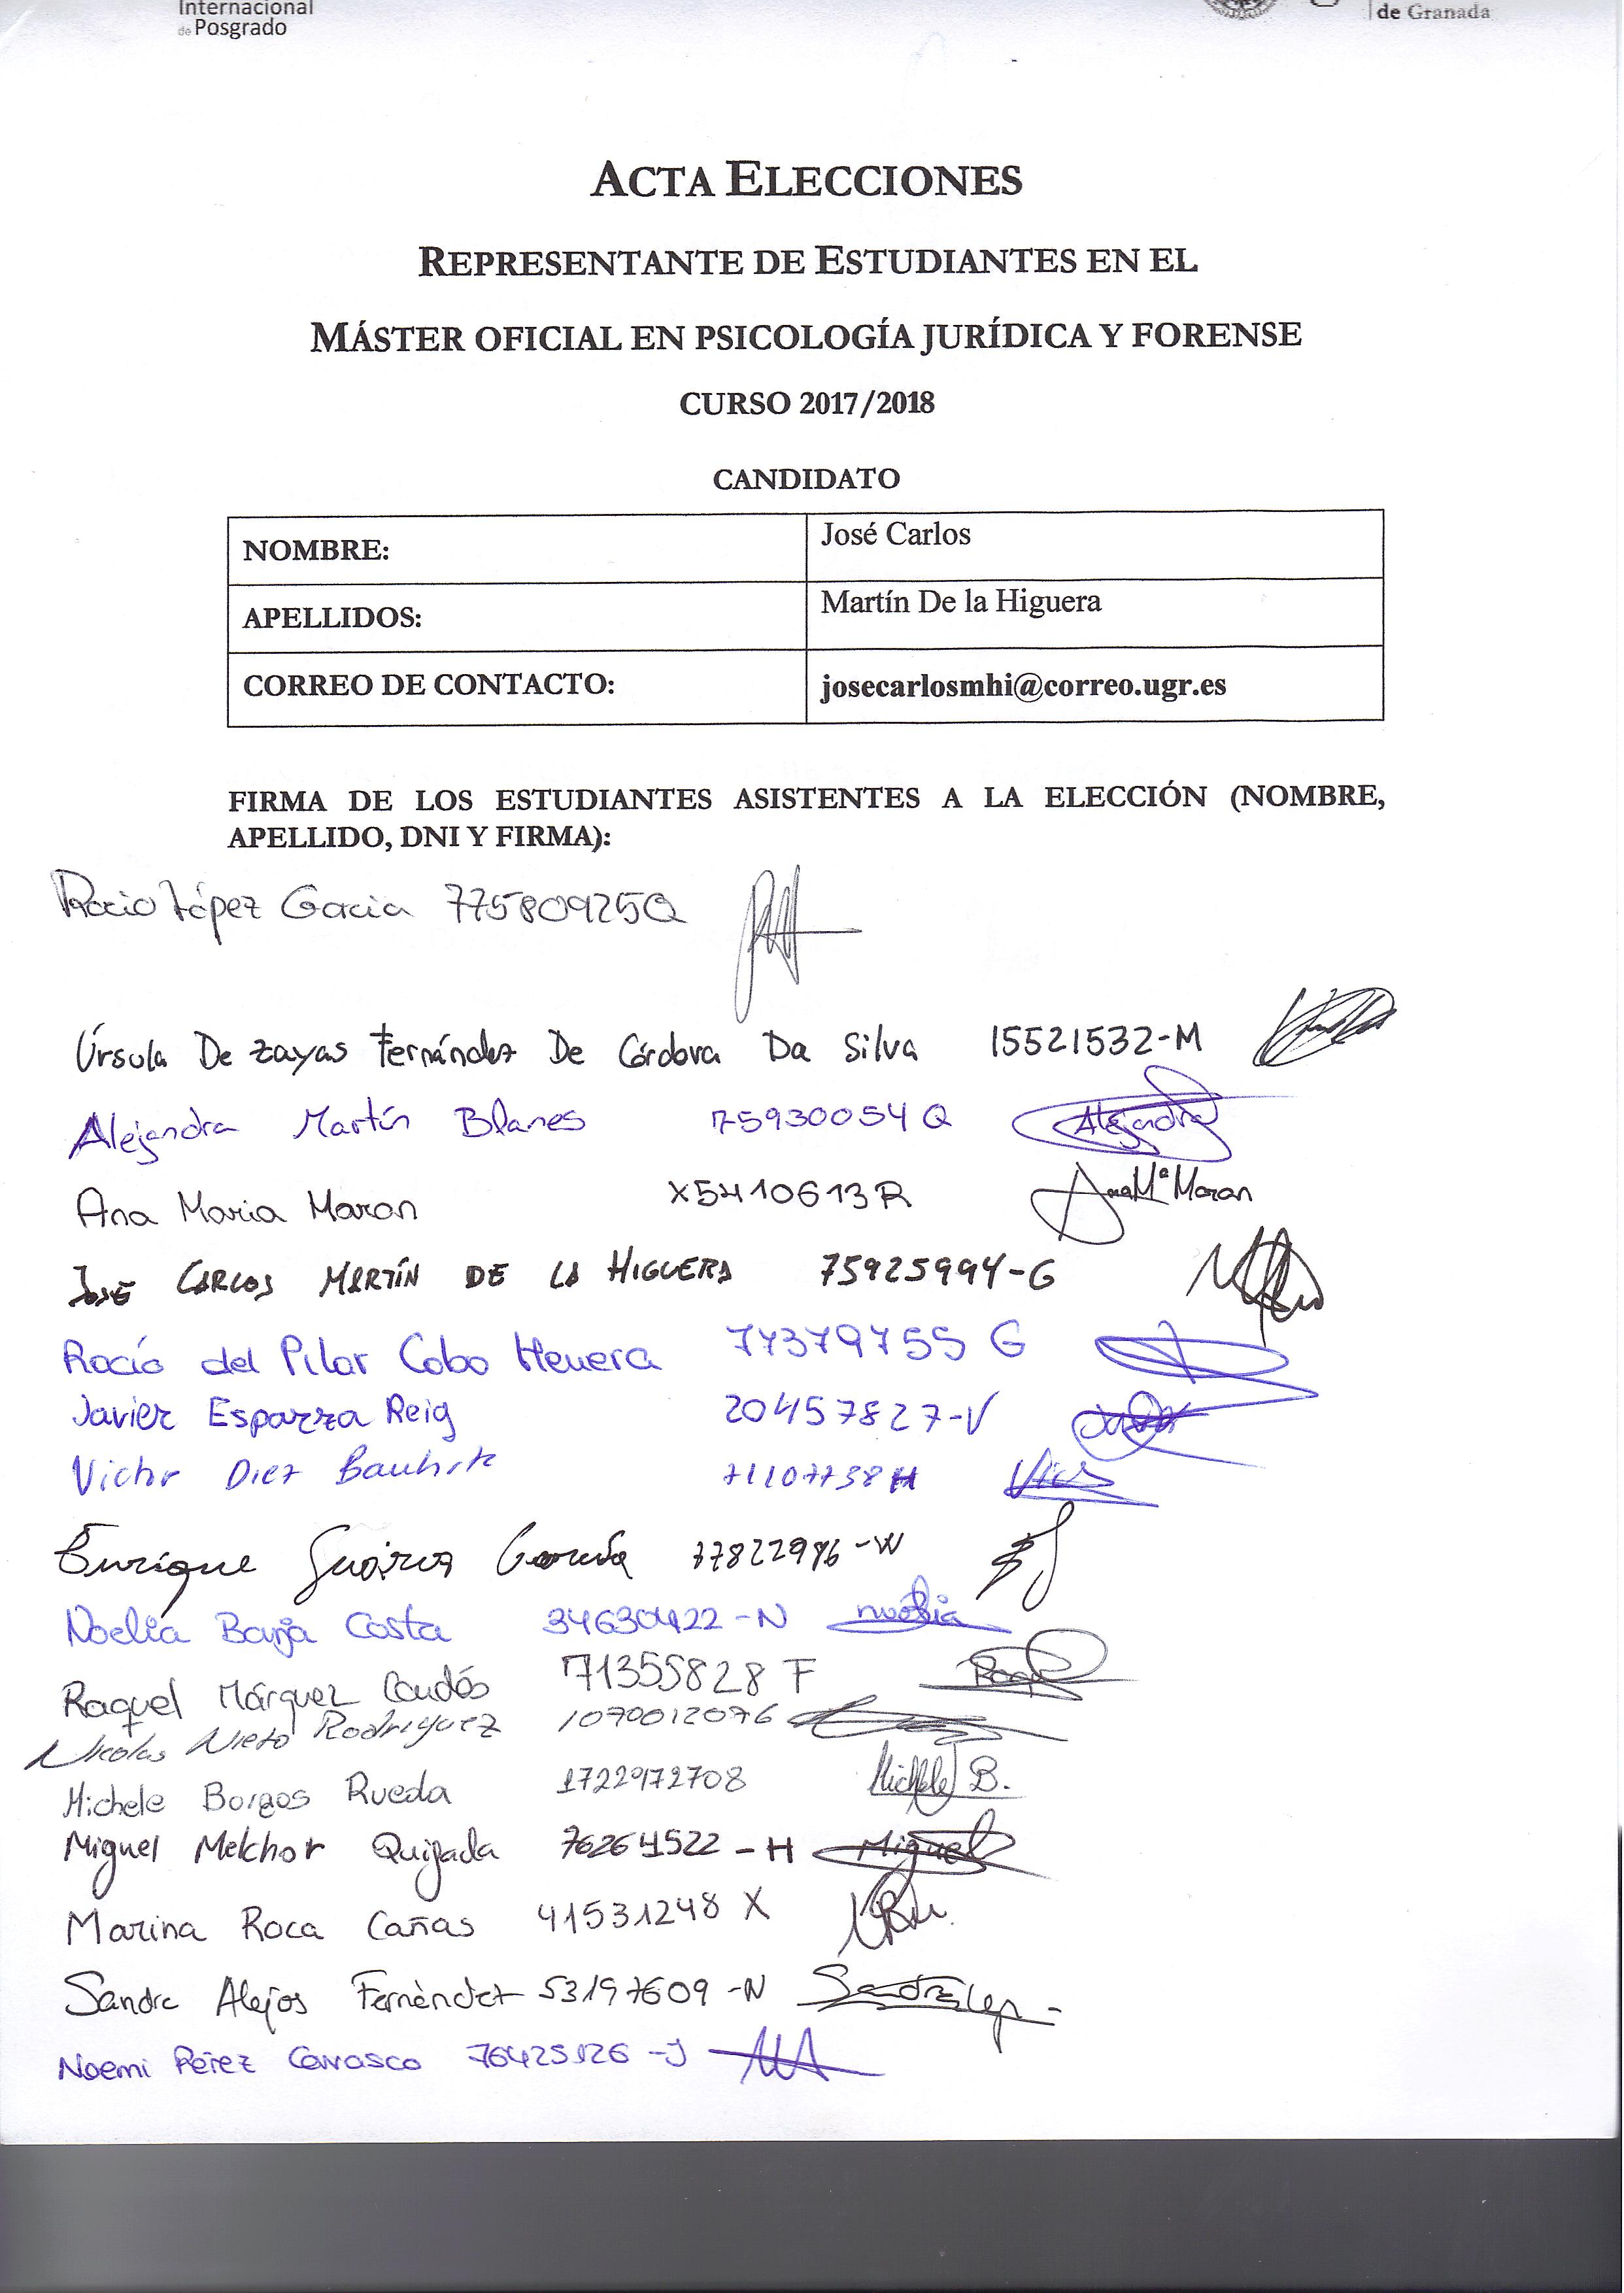 Internacional
de Posgrado
de Granada
ACTA ELECCIONES
REPRESENTANTE DE ESTUDIANTES EN EL
MÁSTER OFICIAL EN PSICOLOGÍA JURÍDICA Y FORENSE
CURSO 2017/2018
CANDIDATO
NOMBRE: José Carlos
APELLIDOS: Martín De la Higuera
CORREO DE CONTACTO: josecarlosmhi@correo.ugr.es
FIRMA DE LOS ESTUDIANTES ASISTENTES A LA ELECCIÓN (NOMBRE,
APELLIDO, DNI Y FIRMA):
Rocio López Garcia 77580925Q
Úrsula De Zayas Fernández De Córdova Da Silva 15521532-M
Alejandra Martín Blanes 75930054Q Alejandra
Ana Maria Moron X5410613R Ana Mª Moran
JOSÉ CARLOS MARTÍN DE LA HIGUERA 75925994-G
Rocío del Pilar Cobo Herrera 77379755 G
Javier Esparza Reig 20457827-V
Victor Diez 71107738H
Enrique Suárez García 77822996-W
Noelia Barja Costa 34630422-N noelia
Raquel Márquez 71355828 F Raquel
Nicolas Nieto Rodriguez 1070012076
Michele Borgos Rueda 1722972708 Michele B.
Miguel Melchor Quijada 76264522-H Miguel
Marina Roca Cañas 41531248 X
Sandra Alejos Fernàndez 53197609-N
Noemi Pérez Carrasco 76425126-J